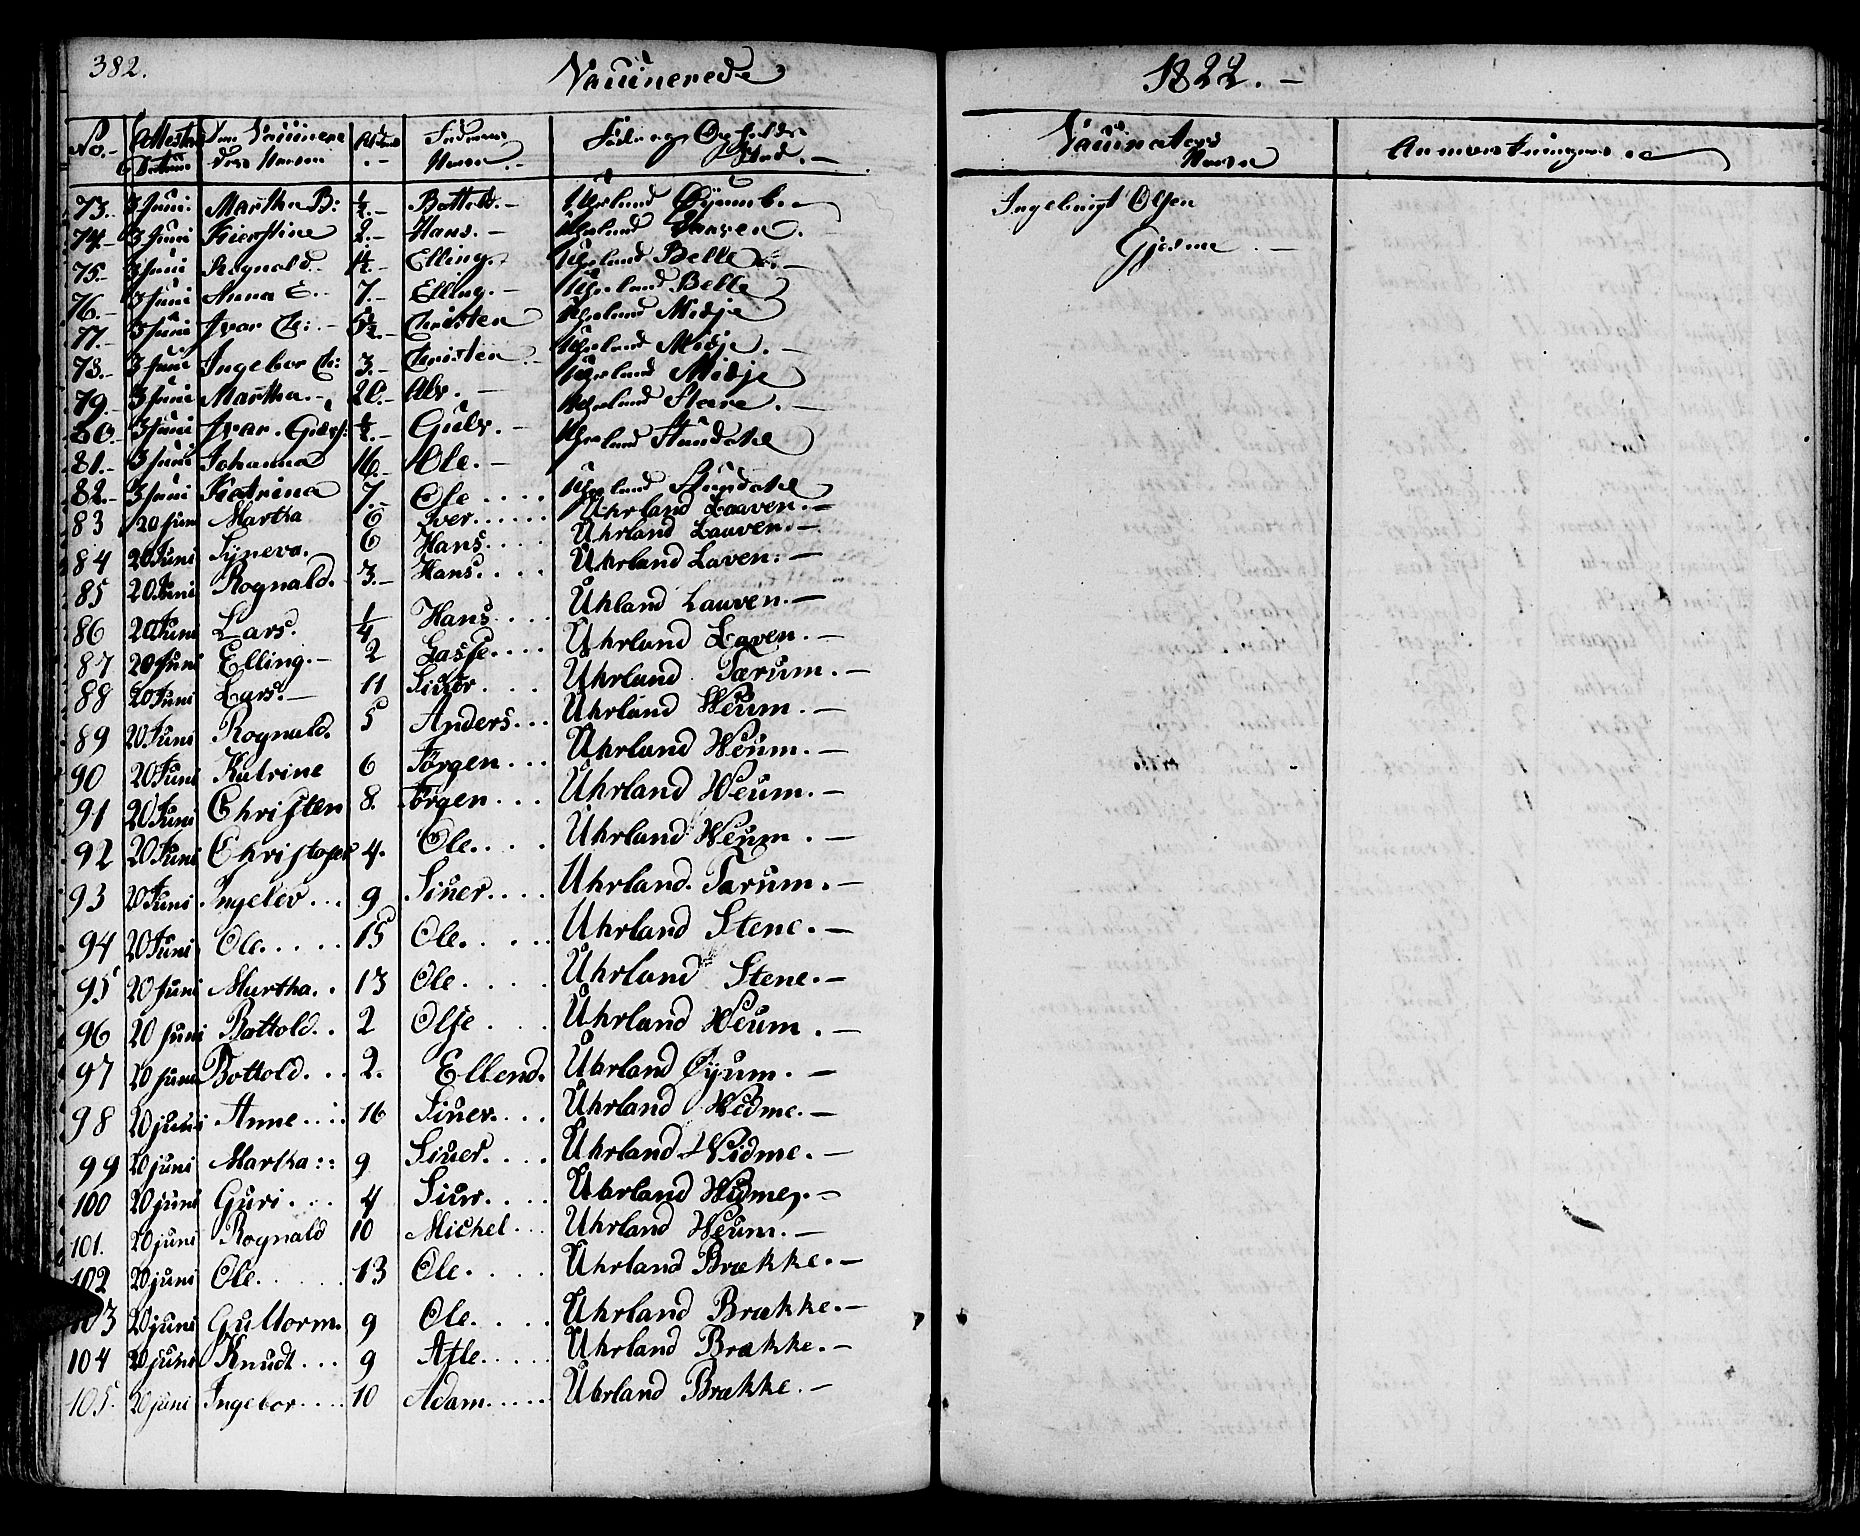 382. Vaccinerede 1822. –
No. – Attestens Datum Den Vaccineredes Navn Alder . – Faderens Navn . – Føde og Opholds Sted. – Vaccinateurs Navn Anmærkninger
73. – 3 Juni. Martha B: ½. – Bottold. – Uhrland Øyum Ingebrigt Olsen
74. – 3 Juni Kierstine 2. – Hans. – Uhrland Laaven. Gjesme . –
75. – 3 Juni Rognald. 1½. – Elling. Uhrland Belle. –
76. – 3 Juni Anna E. 7. – Elling. – Uhrland Belle
77. – 3 Juni Ivar Ch: – 5½. – Christen Uhrland Midje
78. – 3 Juni Ingebor Ch: 3. – Christen. Uhrland Midje. –
79. – 3 Juni Martha. – 20. – Alv. – Uhrland Midje
80. – 3 Juni Ivar. ½. – Gulv. – Uhrland Stære. –
81. – 3 Juni Johanna 16. – Ole. – Uhrland Stundahl
82. – 3 Juni Katrina 7. – Ole . . . . Uhrland Stundahl
83 20 Juni Martha 6 Iver...... Uhrland Laaven. –
84 20 Juni Syneva. 6 Hans.... Uhrland Laaven. –
85 20 Juni Rognald. 3. – Hans.... Uhrland Laven. –
86 20 Juni Lars. ¼ Hans.... Uhland Lauven. –
87 20 Juni Elling. – 2 Lasse.... Uhrland Laven. –
88 20 Juni Lars. – 11 Siuer.... Uhrland Tærum. –
89 20 Juni Rognald. 5 Anders... Uhrland Weum. –
90 20 Juni Katrine 6 Jørgen... Uhrland Weum. –
91 20 Juni Christen 8. Jørgen... Uhrland Weum. –
92 20 Juni Christofer 4. Ole.... Uhrland Weum. –
93 20 Juni Ingelev... 9 Siuer.... Uhrland. Tærum. –
94 20 Juni Ole..... 15 Ole..... Uhrland Stene. –
95 20 Juni Martha.. 13 Ole..... Uhrland Stene. –
96 20 Juni Bottold.. 2 Olse.... Uhrland Weum. –
97 20 Juni Bottold... 2. Ellend. Uhrland Øyum. –
98 20 juni Anne.... 16 Siuer.... Uhrland Widme. –
99 20 juni Martha:: 9 Siuer.... Uhrland Widme. –
100 20 juni Guri.... 4 Siur.... Uhrland Widme. –
101. 20 juni Rognald 10 Michel... Uhrland Weum. –
102 20 juni Ole...... 13 Ole..... Uhrland Brække. –
103 20 juni Guttorm. 9 Ole..... Uhrland Brække. –
104 20 juni Knudt... 9 Atle..... Uhrland Brække. –
105. 20 juni Ingebor.... 10 Adam..... Uhrland Brække. –